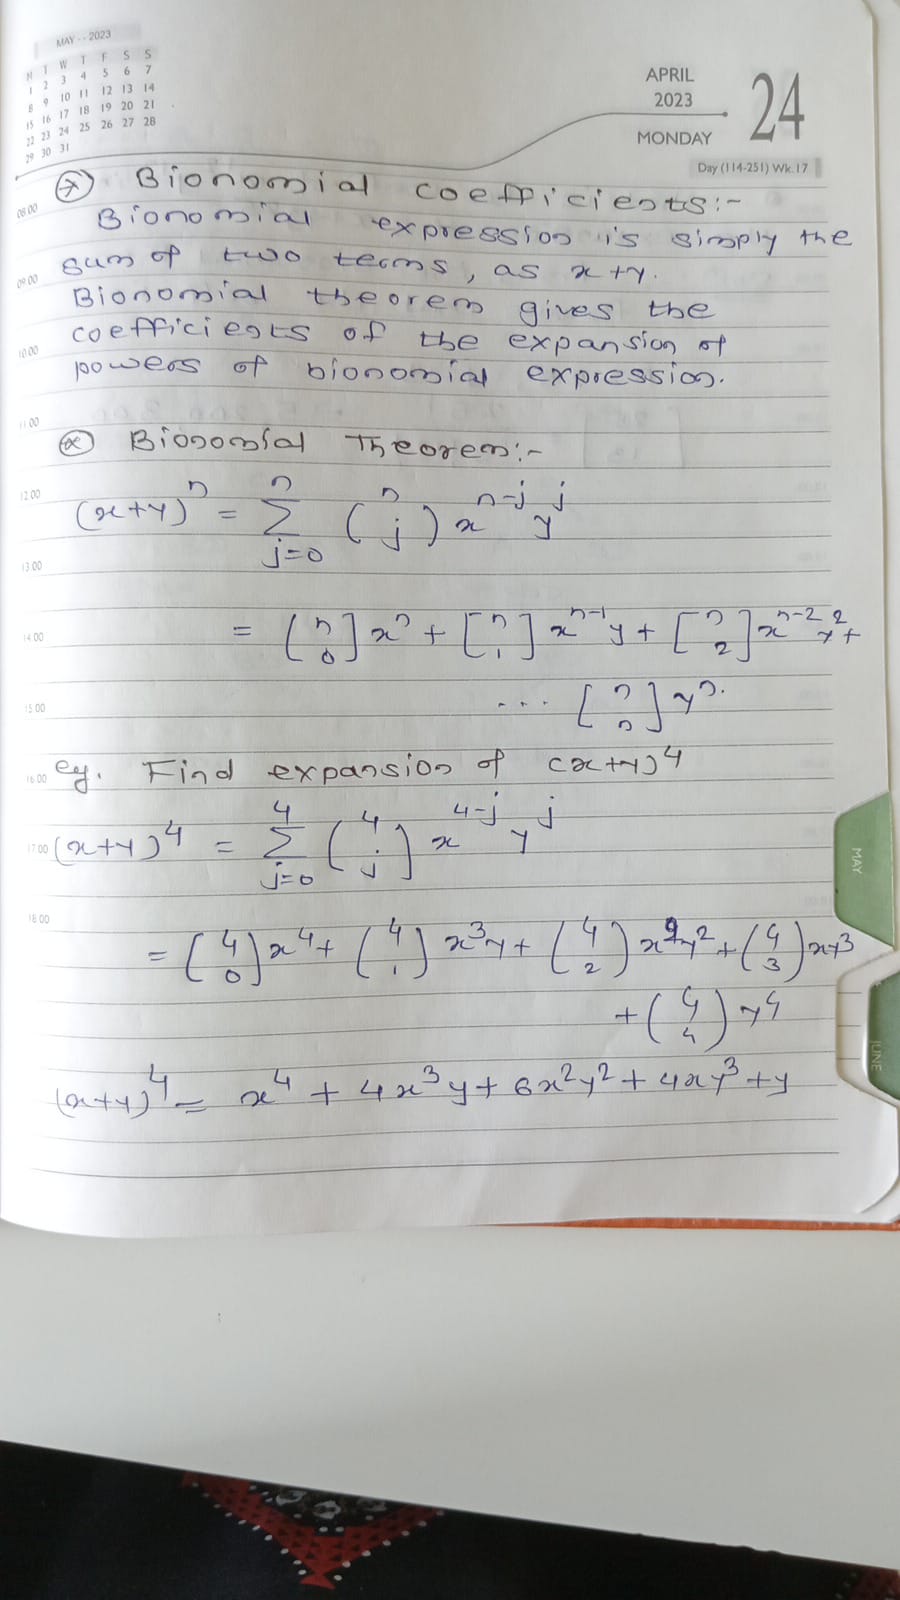 MAY - - 2023
M T W T F S S
1 2 3 4 5 6 7
8 9 10 11 12 13 14
15 16 17 18 19 20 21
22 23 24 25 26 27 28
29 30 31
APRIL
2023
MONDAY
24
Day (114-251) Wk.17
Bionomial coefficients:-
08.00
Bionomial expression is simply the
sum of two terms, as x+y.
09.00
Bionomial theorem gives the
coefficients of the expansion of
10.00
powers of bionomial expression.
11.00
Bionomial Theorem:-
12.00
(x+y)^n = Σ_{j=0}^{n} (n j) x^{n-j} y^j
13.00
14.00
= (n 0] x^n + [n 1] x^{n-1} y + [n 2] x^{n-2} y^2 +
15.00
... [n n] y^n.
16.00
eg. Find expansion of (x+y)^4
17.00
(x+y)^4 = Σ_{j=0}^{4} (4 j] x^{4-j} y^j
18.00
= (4 0) x^4 + (4 1) x^3y + (4 2) x^2y^2 + (4 3) xy^3
+ (4 4) y^4
(x+y)^4 = x^4 + 4x^3y + 6x^2y^2 + 4xy^3 + y
MAY
JUNE